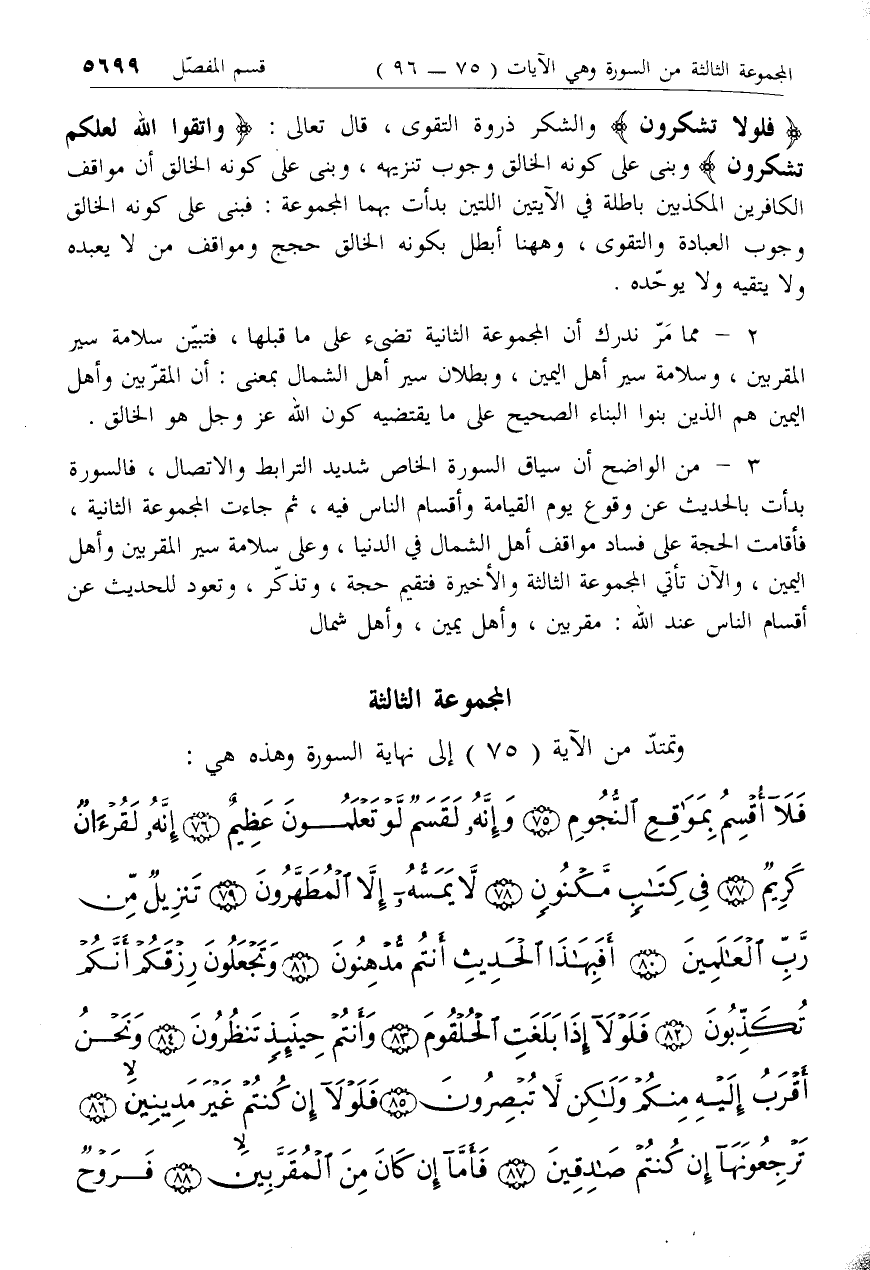 المجموعة الثالثة من السورة وهي الآيات ( ٧٥ – ٩٦ ) قسم المفصّل ٥٦٩٩
﴿ فلولا تشكرون ﴾ والشكر ذروة التقوى ، قال تعالى : ﴿ واتقوا الله لعلكم
تشكرون ﴾ وبنى على كونه الخالق وجوب تنزيهه ، وبنى على كونه الخالق أن مواقف
الكافرين المكذبين باطلة في الآيتين اللتين بدأت بهما المجموعة : فبنى على كونه الخالق
وجوب العبادة والتقوى ، وههنا أبطل بكونه الخالق حجج ومواقف من لا يعبده
ولا يتقيه ولا يوحّده .
٢ – مما مَرّ ندرك أن المجموعة الثانية تضيء على ما قبلها ، فتبيّن سلامة سير
المقربين ، وسلامة سير أهل اليمين ، وبطلان سير أهل الشمال بمعنى : أن المقرّبين وأهل
اليمين هم الذين بنوا البناء الصحيح على ما يقتضيه كون الله عز وجل هو الخالق .
٣ – من الواضح أن سياق السورة الخاص شديد الترابط والاتصال ، فالسورة
بدأت بالحديث عن وقوع يوم القيامة وأقسام الناس فيه ، ثم جاءت المجموعة الثانية ،
فأقامت الحجة على فساد مواقف أهل الشمال في الدنيا ، وعلى سلامة سير المقربين وأهل
اليمين ، والآن تأتي المجموعة الثالثة والأخيرة فتقيم حجة ، وتذكّر ، وتعود للحديث عن
أقسام الناس عند الله : مقربين ، وأهل يمين ، وأهل شمال
المجموعة الثالثة
وتمتدّ من الآية ( ٧٥ ) إلى نهاية السورة وهذه هي :
فَلَآ أُقْسِمُ بِمَوَٰقِعِ ٱلنُّجُومِ ٧٥ وَإِنَّهُۥ لَقَسَمٌ لَّوْ تَعْلَمُونَ عَظِيمٌ ٧٦ إِنَّهُۥ لَقُرْءَانٌ
كَرِيمٌ ٧٧ فِي كِتَٰبٍ مَّكْنُونٍ ٧٨ لَّا يَمَسُّهُۥٓ إِلَّا ٱلْمُطَهَّرُونَ ٧٩ تَنزِيلٌ مِّن
رَّبِّ ٱلْعَٰلَمِينَ ٨٠ أَفَبِهَٰذَا ٱلْحَدِيثِ أَنتُم مُّدْهِنُونَ ٨١ وَتَجْعَلُونَ رِزْقَكُمْ أَنَّكُمْ
تُكَذِّبُونَ ٨٢ فَلَوْلَآ إِذَا بَلَغَتِ ٱلْحُلْقُومَ ٨٣ وَأَنتُمْ حِينَئِذٍ تَنظُرُونَ ٨٤ وَنَحْنُ
أَقْرَبُ إِلَيْهِ مِنكُمْ وَلَٰكِن لَّا تُبْصِرُونَ ٨٥ فَلَوْلَآ إِن كُنتُمْ غَيْرَ مَدِينِينَ ٨٦
تَرْجِعُونَهَآ إِن كُنتُمْ صَٰدِقِينَ ٨٧ فَأَمَّآ إِن كَانَ مِنَ ٱلْمُقَرَّبِينَ ٨٨ فَرَوْحٌ